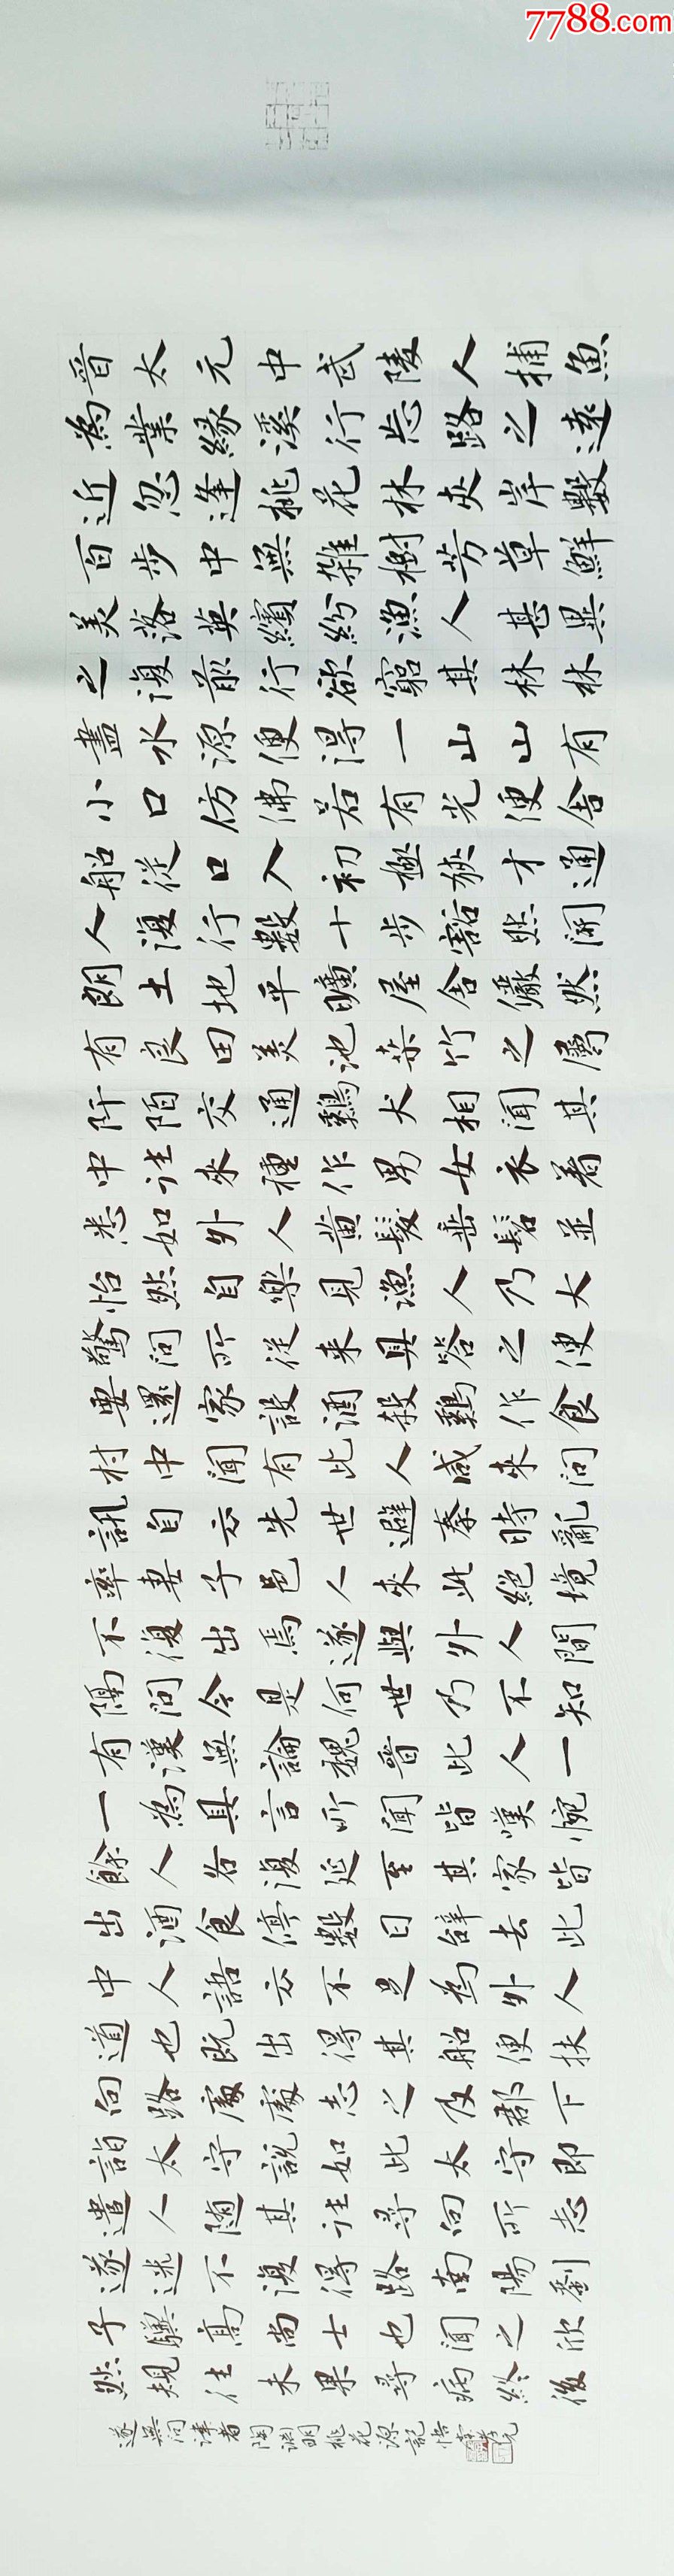 晋太元中武陵人捕魚
為業緣溪行忘路之遠
近忽逢桃花林夾岸數
百步中無雜樹芳草鮮
美落英繽紛漁人甚異
之復前行欲窮其林林
盡水源便得一山山有
小口仿佛若有光便舍
船從口入初極狹才通
人復行數十步豁然開
朗土地平曠屋舍儼然
有良田美池桑竹之屬
阡陌交通鷄犬相聞其
中往來種作男女衣着
悉如外人黄髮垂髫並
怡然自樂見漁人乃大
驚問所從来具答之便
要還家設酒殺鷄作食
村中聞有此人咸來問
訊自云先世避秦時亂
率妻子邑人來此絕境
不復出焉遂與外人間
隔問今是何世乃不知
有漢無論魏晋此人一
一為具言所聞皆嘆惋
餘人各復延至其家皆
出酒食停數日辭去此
中人語云不足為外人
道也既出得其船便扶
向路處處志之及郡下
詣太守說如此太守即
遣人随其往尋向所志
遂迷不復得路南陽劉
子驥高尚士也聞之欣
然規往未果尋病終後
遂無問津者陶淵明桃花源記悟
7788.com